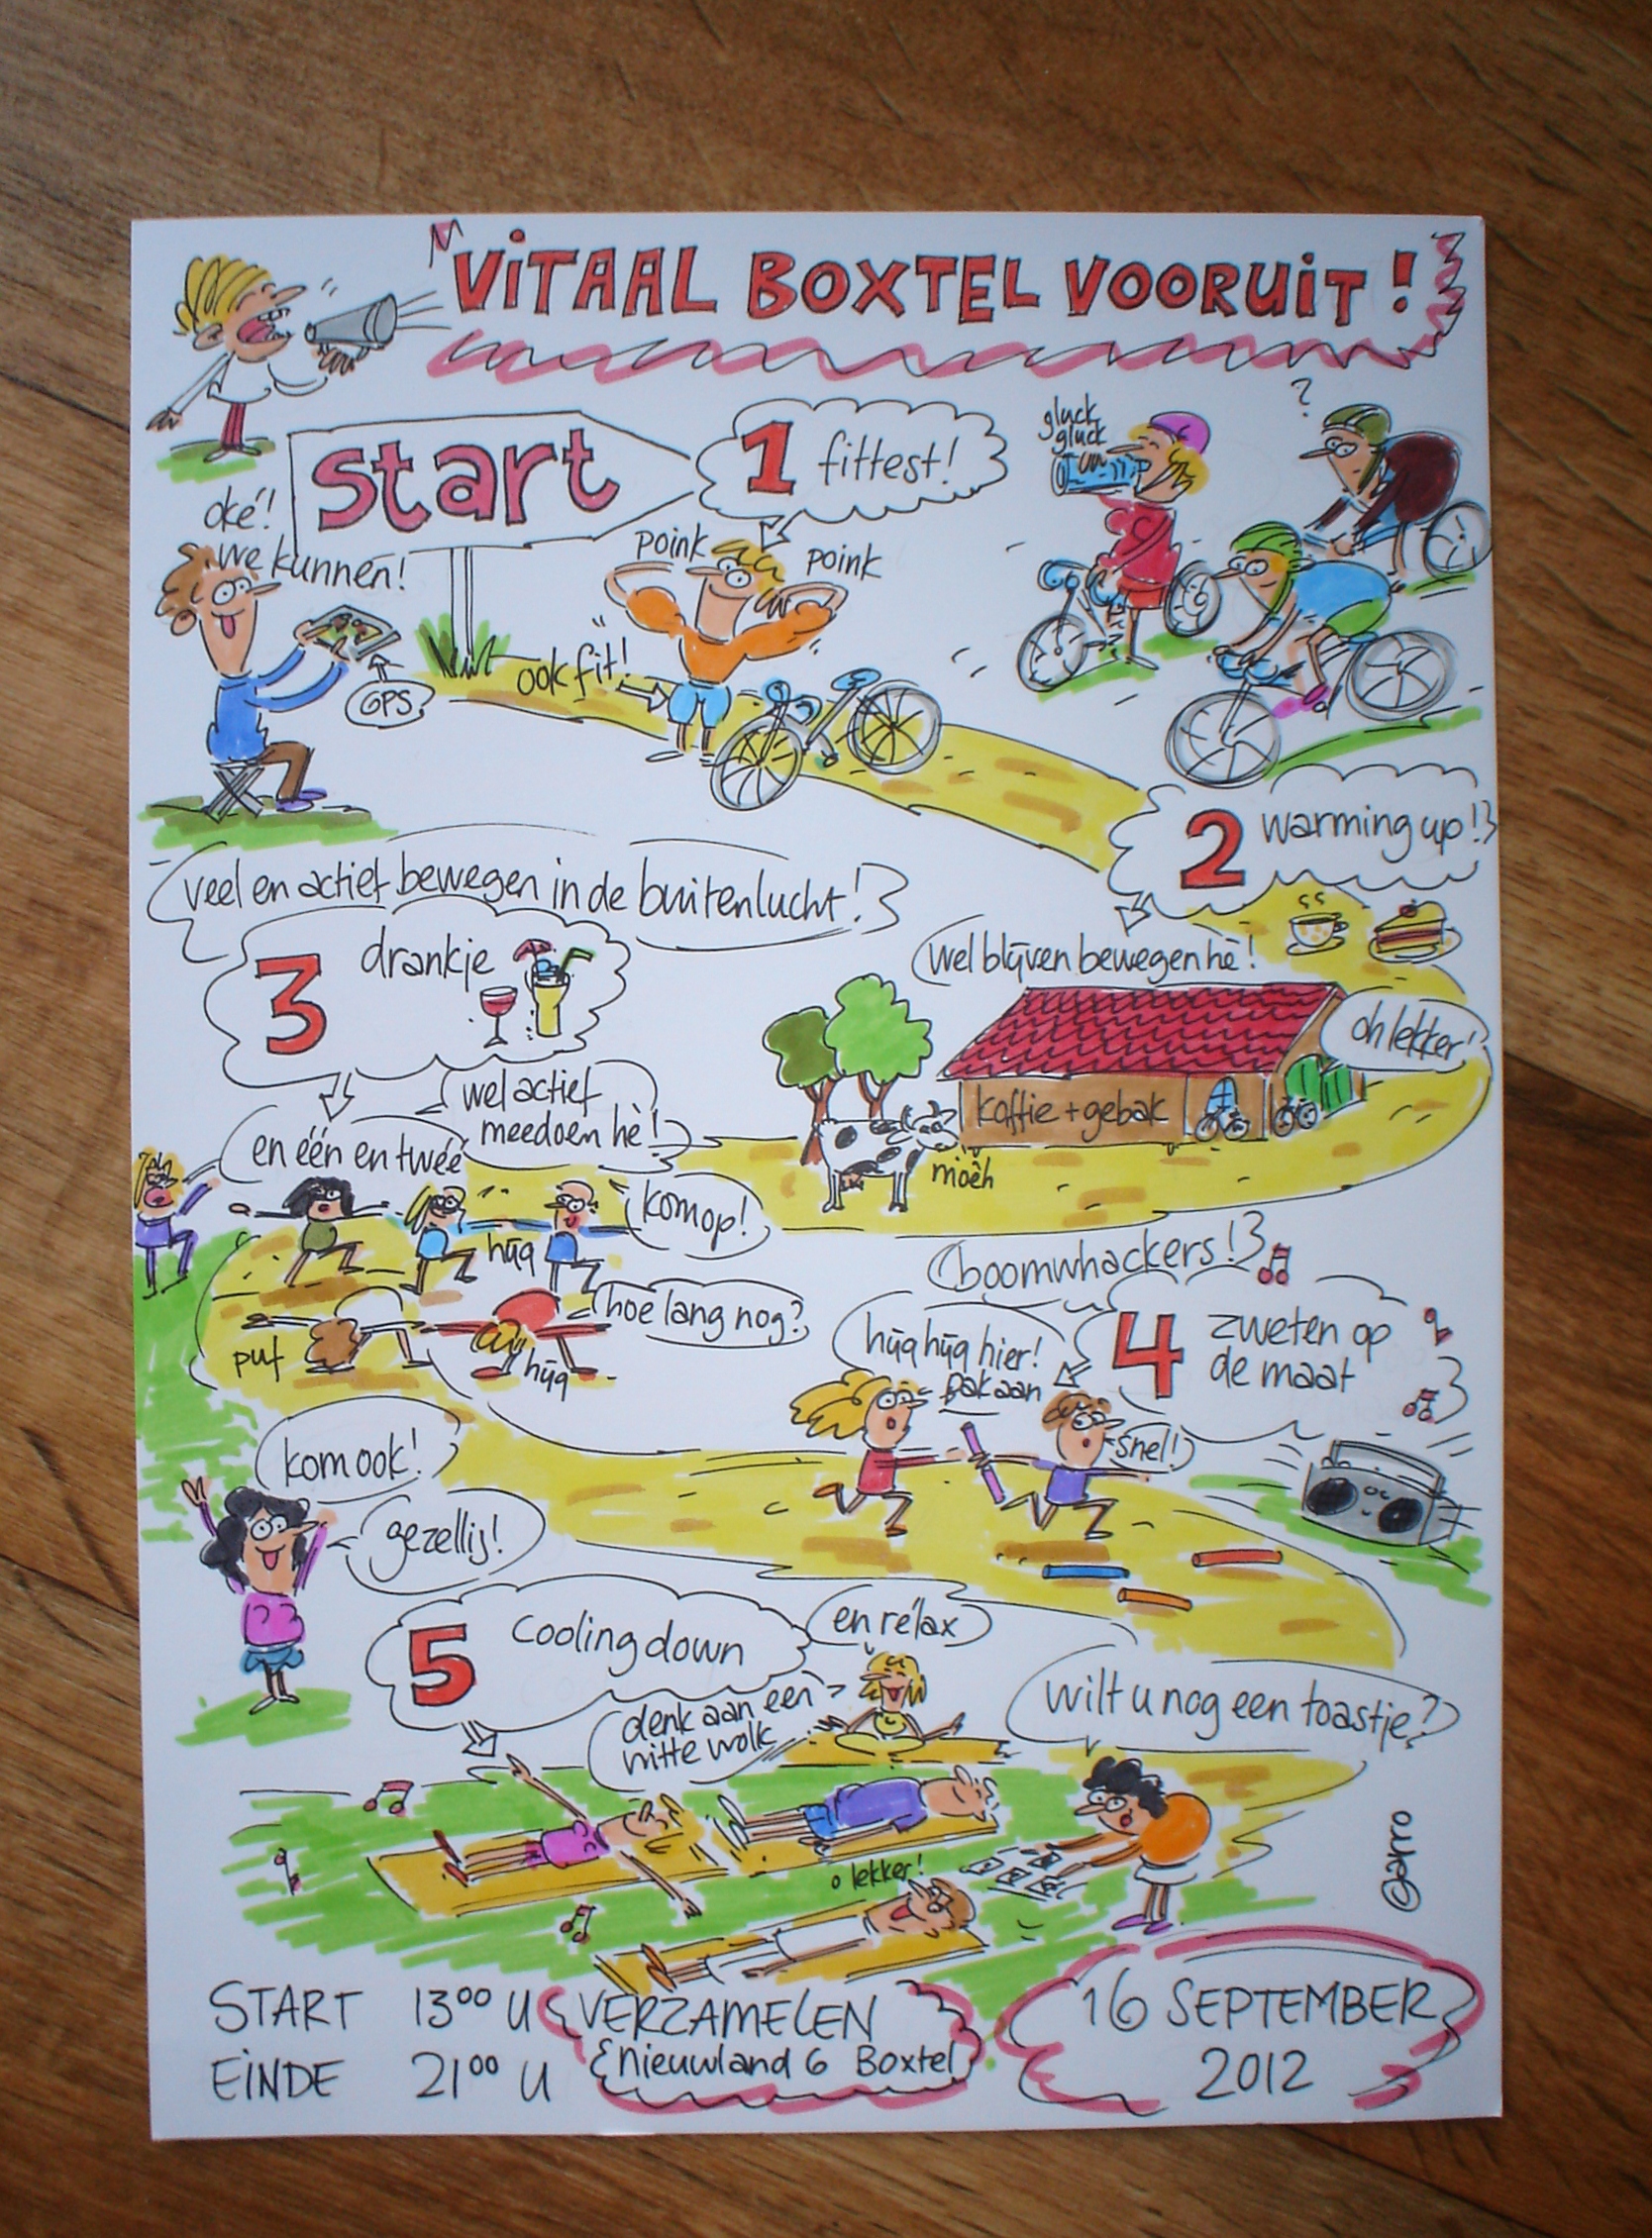 VITAAL BOXTEL VOORUIT!
start
1 fittest!
gluck
gluck
?
oké!
we kunnen!
poink
poink
ook fit!
GPS
2 warming up!
veel en actief bewegen in de buitenlucht!
wel blijven bewegen hè!
3 drankje
oh lekker!
koffie + gebak
wel actief
meedoen hè!
en één en twéé
moêh
kom op!
hijg
boomwhackers!
hoe lang nog?
puf
hijg
4 zweten op
de maat
hijg hijg hier!
Pak aan
snel!
kom ook!
gezellig!
5 cooling down
en rélax
denk aan een
witte wolk
wilt u nog een toastje?
o lekker!
START 13⁰⁰ U
EINDE 21⁰⁰ U
VERZAMELEN
Nieuwland 6 Boxtel
16 SEPTEMBER
2012